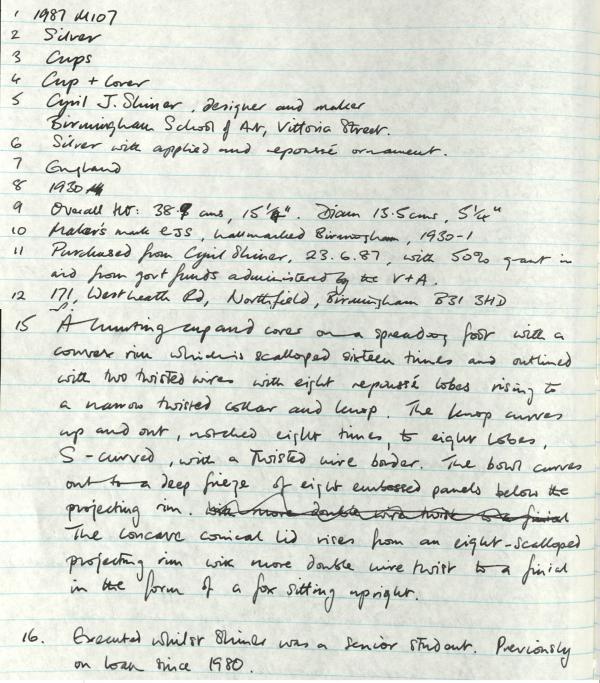 1 1987 M107
2 Silver
3 Cups
4 Cup + Cover
5 Cyril J. Shiner, designer and maker
Birmingham School of Art, Vittoria Street.
6 Silver with applied and repoussé ornament.
7 England
8 1930
9 Overall Ht: 38. cms, 15¼". Diam 13.5cms, 5¼"
10 Maker's mark CJS, hallmarked Birmingham, 1930-1
11 Purchased from Cyril Shiner, 23.6.87, with 50% grant in
aid from govt funds administered by the V+A.
12 171, West heath Rd, Northfield, Birmingham B31 3HD
15 A hunting cup and cover on a spreading foot with a
convex rim which is scalloped sixteen times and outlined
with two twisted wires with eight repoussé lobes rising to
a narrow twisted collar and knop. The knop curves
up and out, notched eight times, to eight lobes,
S-curved, with a twisted wire border. The bowl curves
out to a deep frieze of eight embossed panels below the
projecting rim. with more double wire twist to a finial
The concave conical lid rises from an eight-scalloped
projecting rim with more double wire twist to a finial
in the form of a fox sitting upright.
16. Executed whilst Shiner was a senior student. Previously
on loan since 1980.